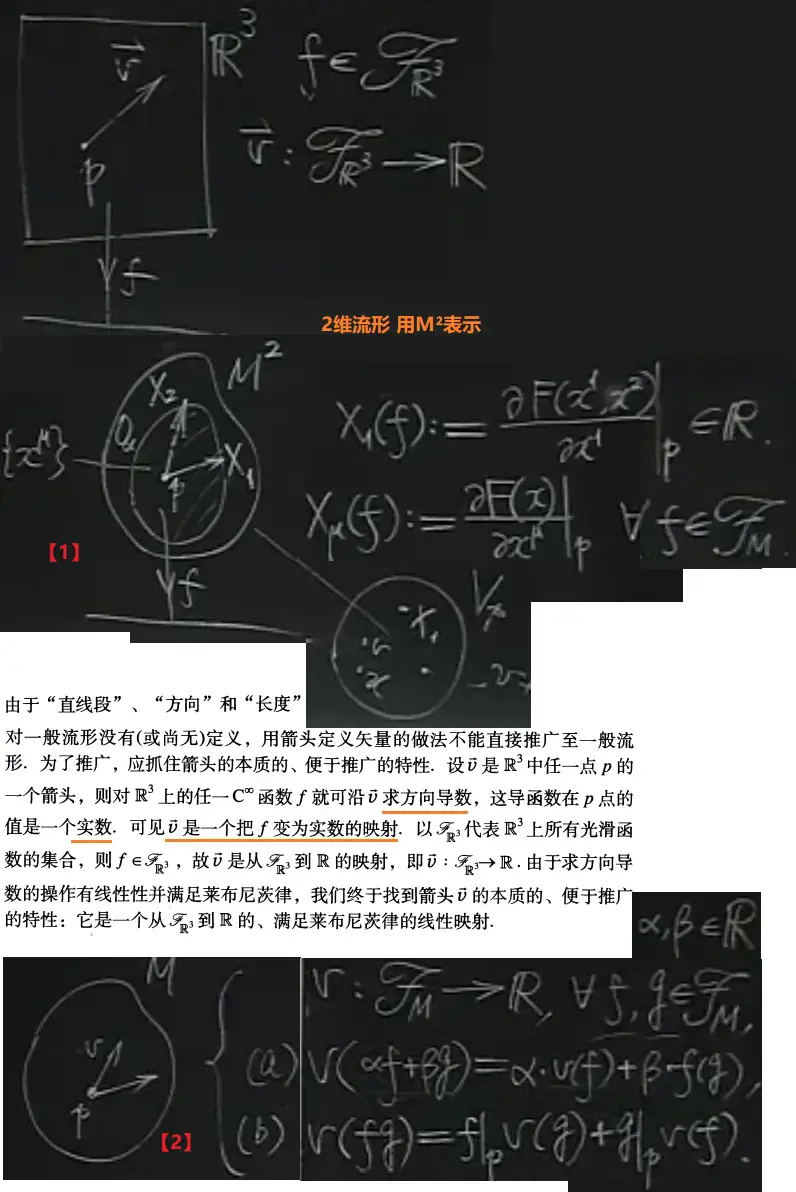 v⃗
p
ℝ³
f
f ∈ ℱ_ℝ³
v⃗ : ℱ_ℝ³ → ℝ
2维流形 用M²表示
M²
X₂
X₁
p
{x^μ}
f
【1】
X₁(f) := ∂F(x¹, x²)/∂x¹ |_p ∈ ℝ.
X_μ(f) := ∂F(x)/∂x^μ |_p ∀ f ∈ ℱ_M.
X₁
v
由于“直线段”、“方向”和“长度”
对一般流形没有(或尚无)定义，用箭头定义矢量的做法不能直接推广至一般流
形. 为了推广，应抓住箭头的本质的、便于推广的特性. 设 v⃗ 是 ℝ³ 中任一点 p 的
一个箭头，则对 ℝ³ 上的任一 C^∞ 函数 f 就可沿 v⃗ 求方向导数，这导函数在 p 点的
值是一个实数. 可见 v⃗ 是一个把 f 变为实数的映射. 以 ℱ_ℝ³ 代表 ℝ³ 上所有光滑函
数的集合，则 f ∈ ℱ_ℝ³ ，故 v⃗ 是从 ℱ_ℝ³ 到 ℝ 的映射，即 v⃗ : ℱ_ℝ³ → ℝ . 由于求方向导
数的操作有线性性并满足莱布尼茨律，我们终于找到箭头 v⃗ 的本质的、便于推广
的特性：它是一个从 ℱ_ℝ³ 到 ℝ 的、满足莱布尼茨律的线性映射.
α, β ∈ ℝ
M
v
p
【2】
v : ℱ_M → ℝ, ∀ f, g ∈ ℱ_M,
(a) v(αf+βg) = α·v(f)+β·f(g),
(b) v(fg) = f|_p v(g) + g|_p v(f).